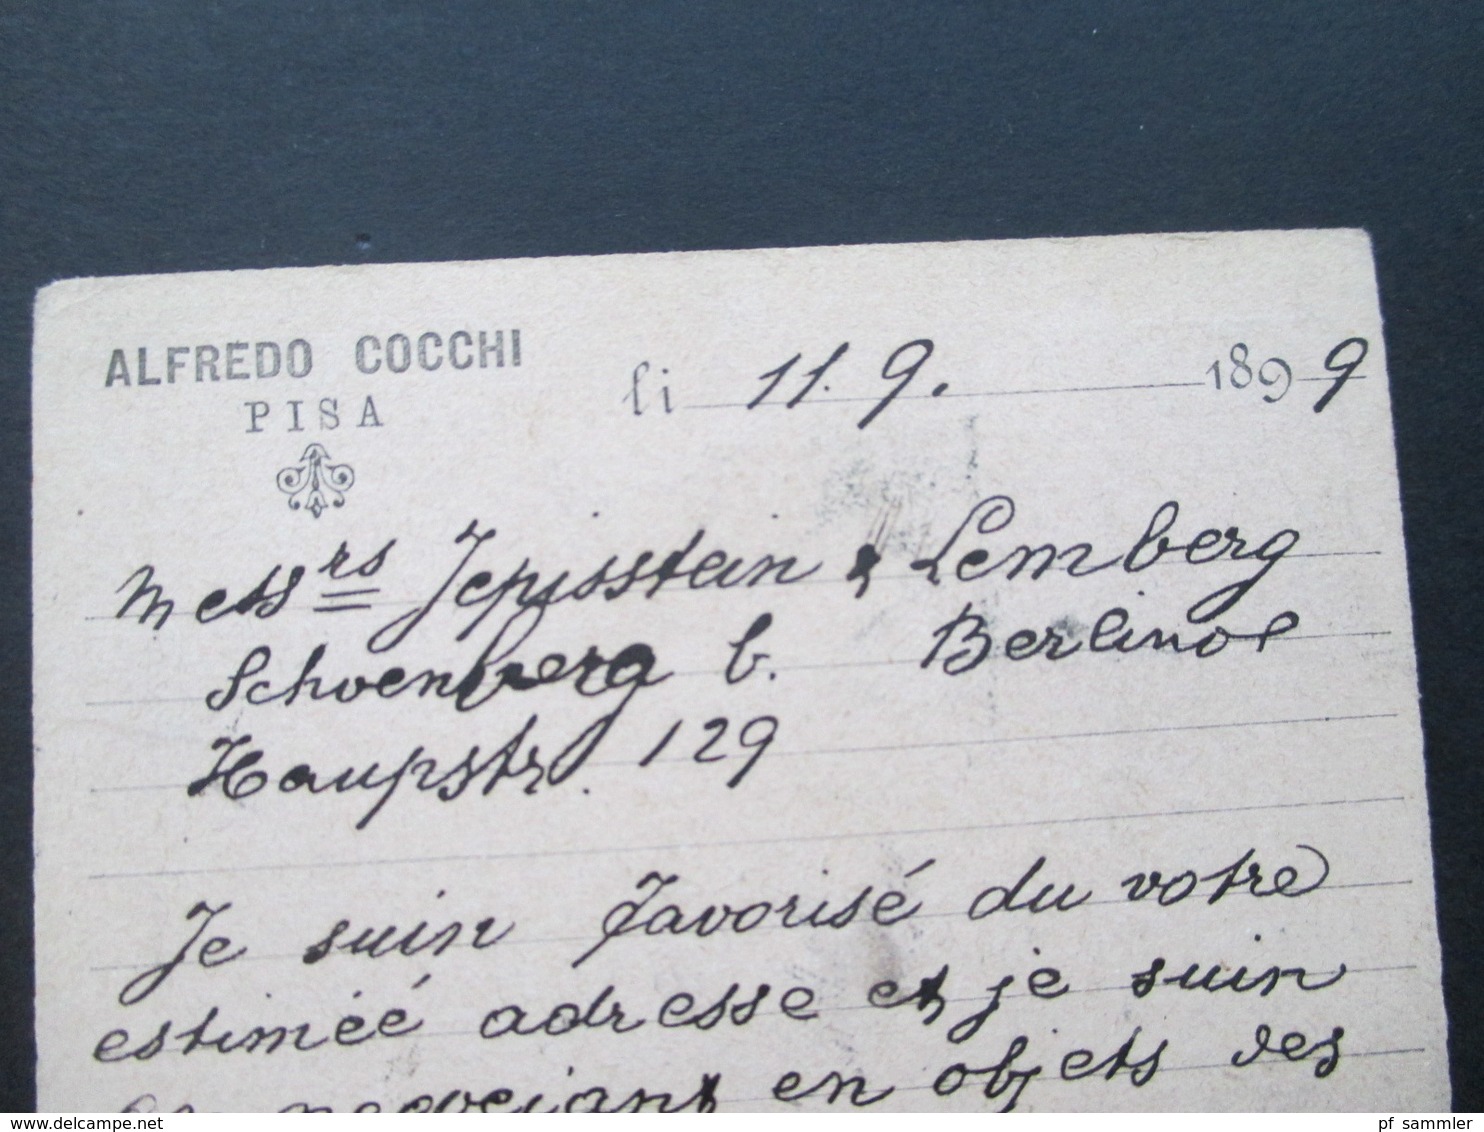 ALFREDO COCCHI
PISA
li 11. 9. 1899
Messrs Jepisstein & Lemberg
Schoenberg b. Berlino
Haupstr. 129
Je suin favorisé du votre
estiméé adresse et je suin
negociant en objets des
delcampe.net
pf_sammler